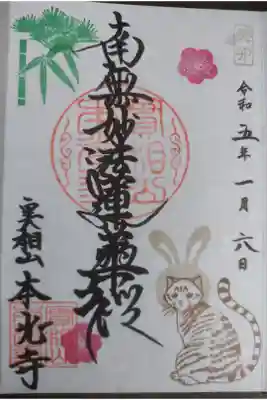 令和五年一月六日
南無妙法蓮華経
實相山 本光寺